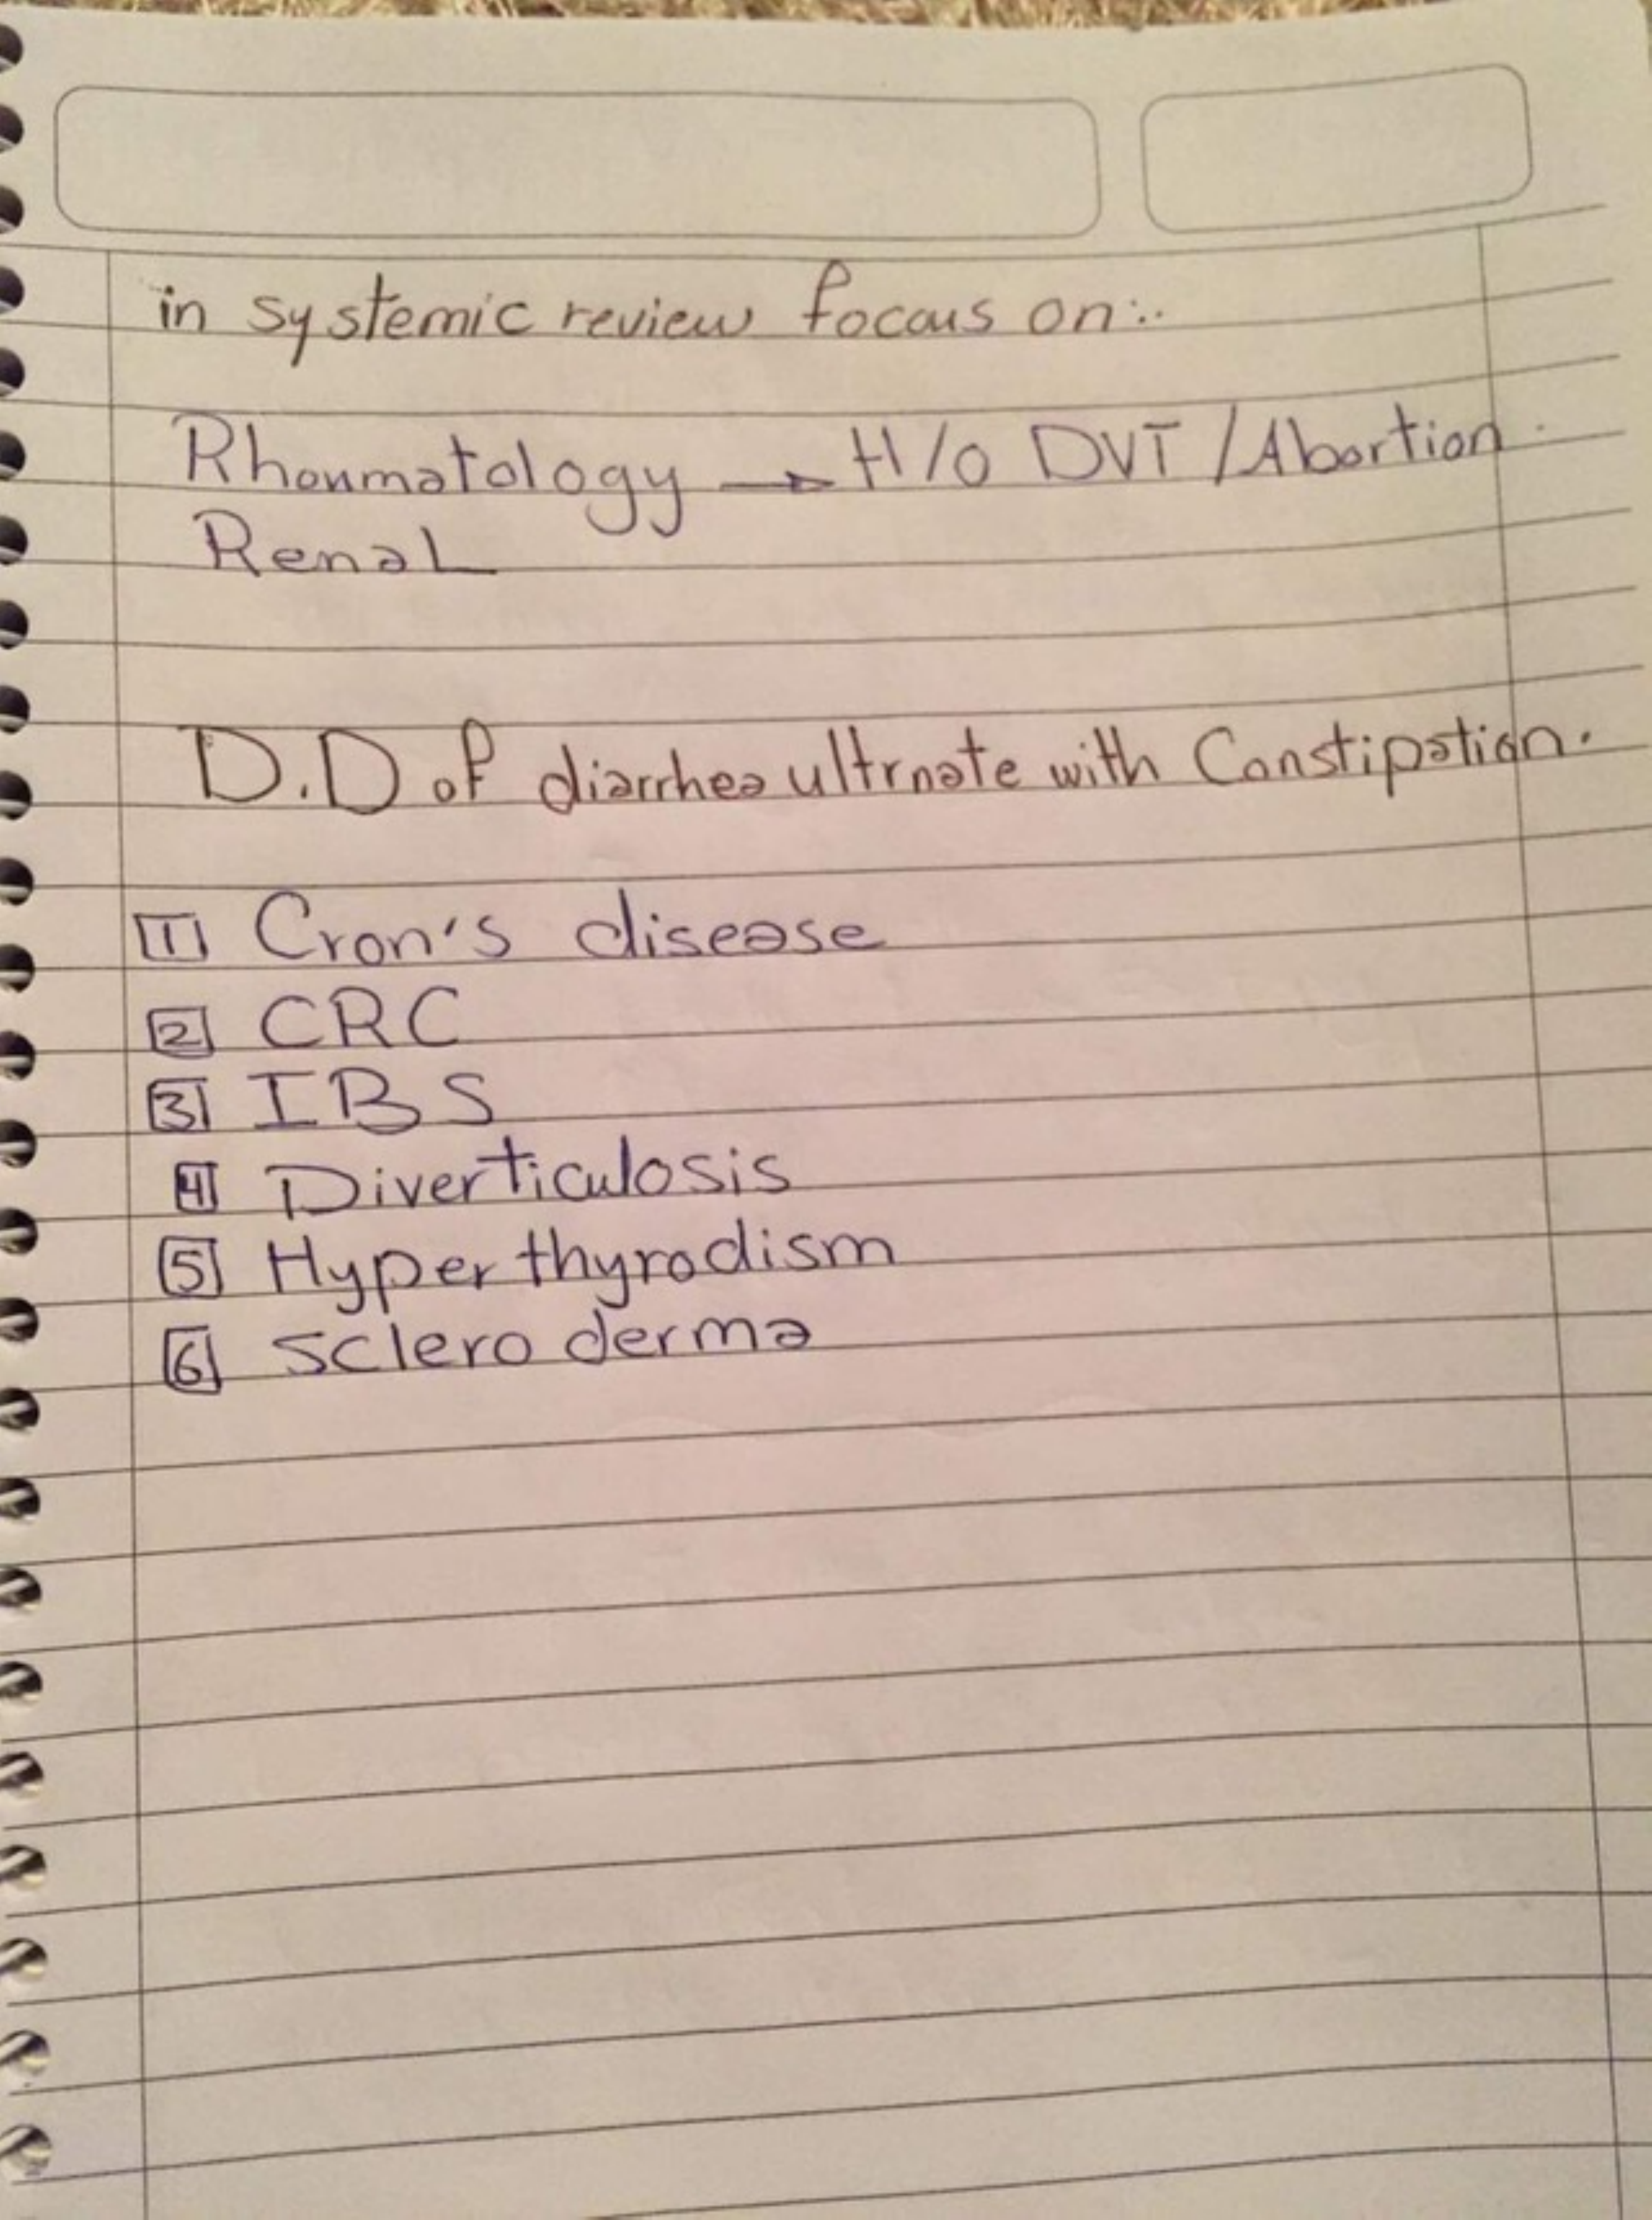 in systemic review focous on:.
Rhoumatology → H/O DVT / Abortion.
Renal
D.D of diarrhea ultrnate with Constipation.
1 Cron's disease
2 CRC
3 IBS
4 Diverticulosis
5 Hyper thyrodism
6 sclero derma